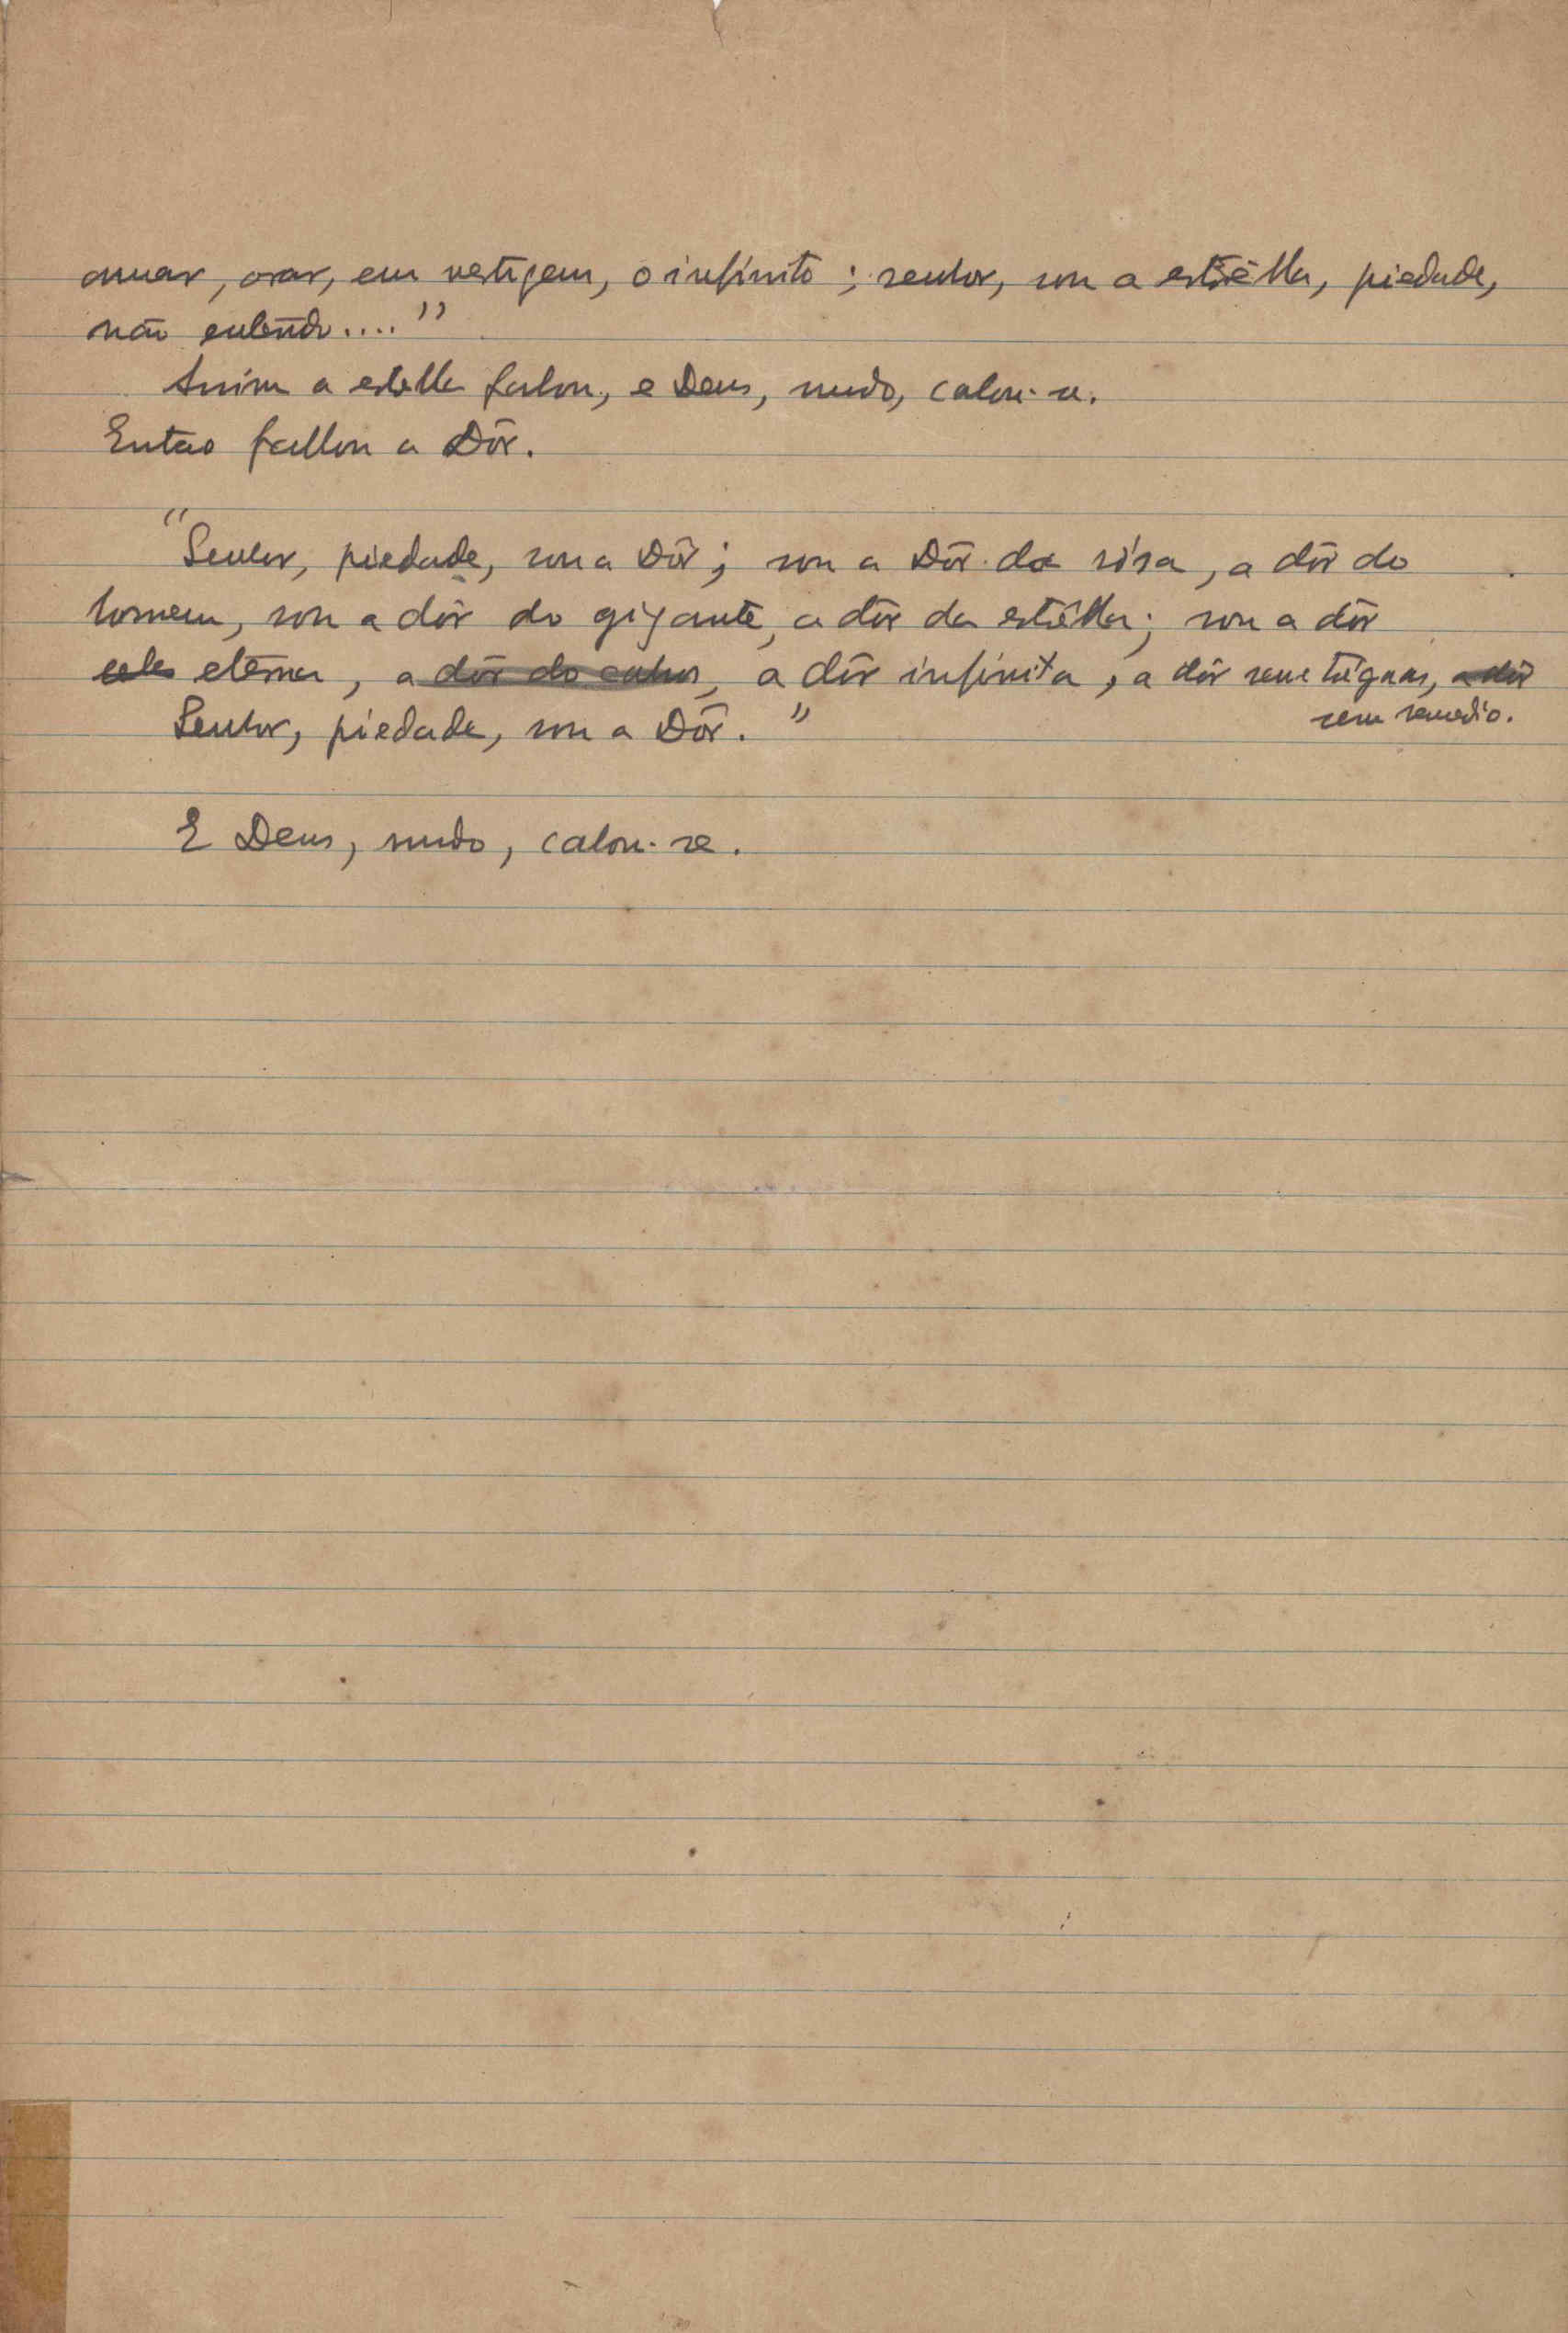 amar, orar, em vertigem, o infinito; senhor, sou a estrêlla, piedade,
não entendo...."
Assim a estrella falou, e Deus, mudo, calou-se.
Então fallou a Dôr.
"Senhor, piedade, sou a Dôr; sou a Dôr da rosa, a dôr do
homem, sou a dôr do gigante, a dôr da estrêlla; sou a dôr
eterna, a dôr do, a dôr infinita, a dôr sem tréguas, a dôr
sem remedio.
Senhor, piedade, sou a Dôr."
E Deus, mudo, calou-se.